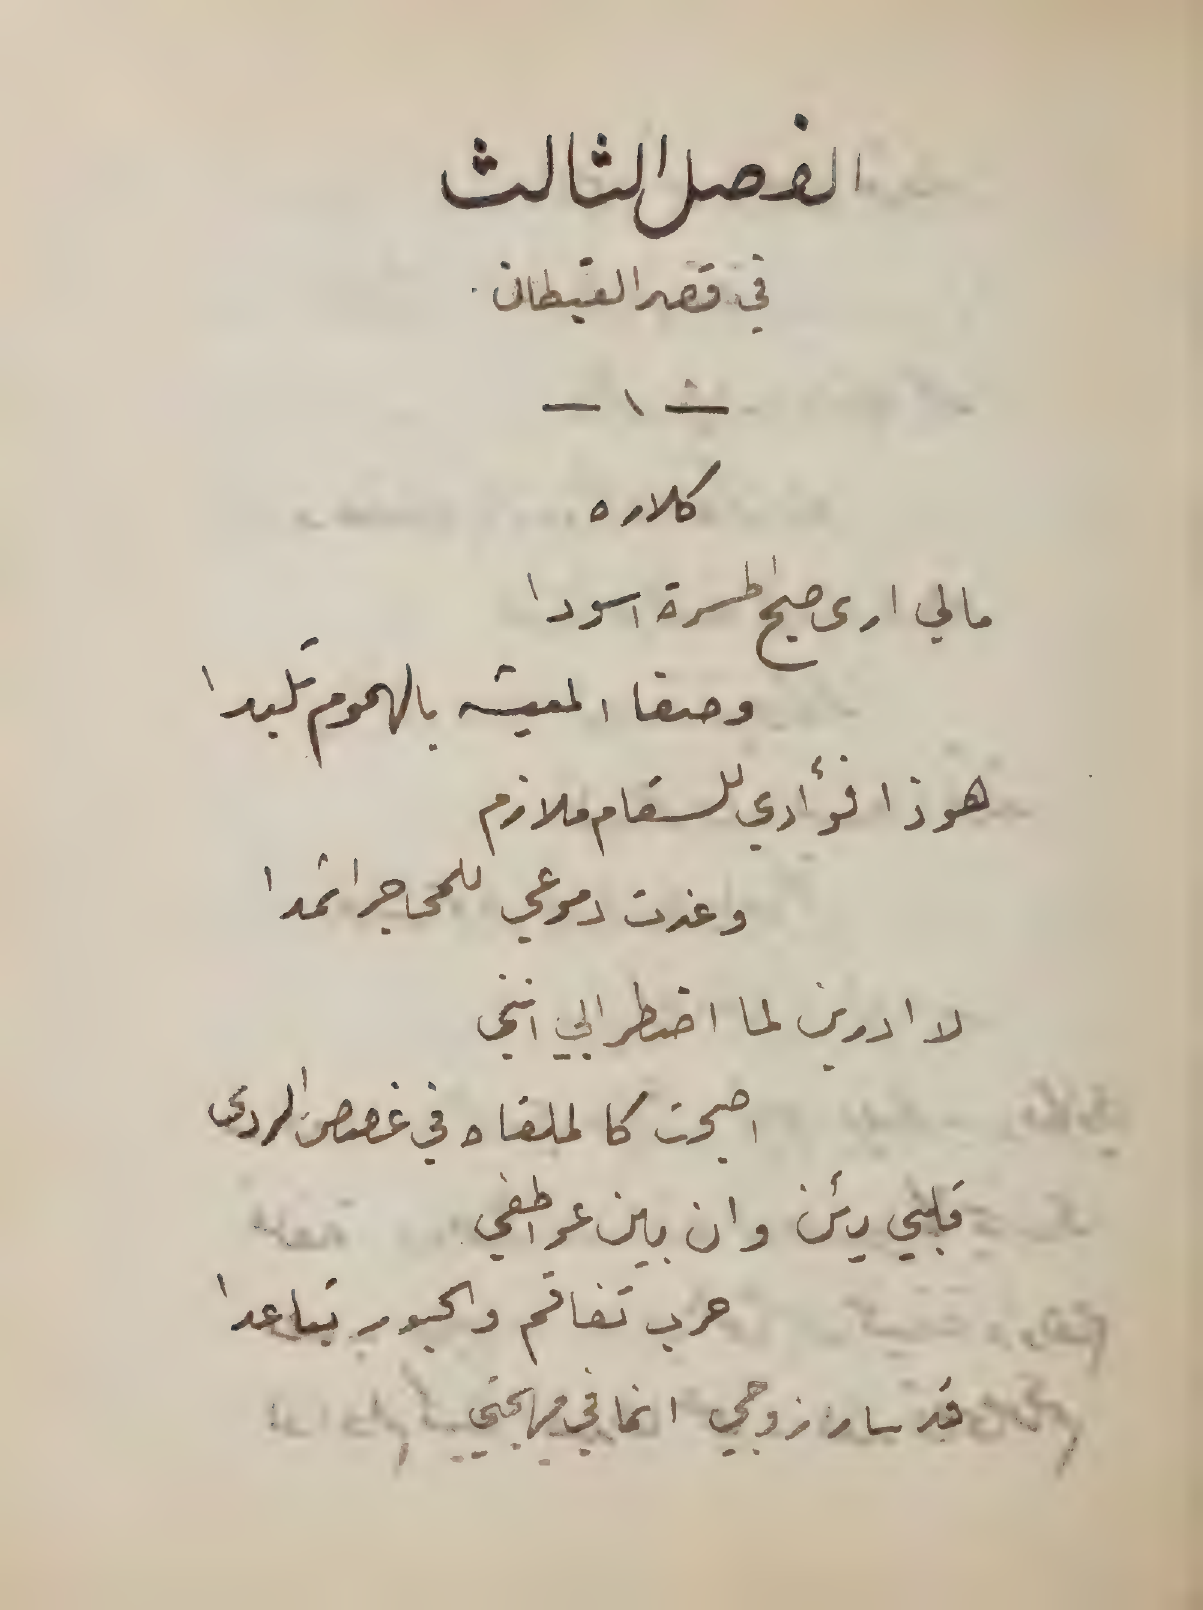 الفصل الثالث
في قصر القبطان
— ١ —
كلاره
مالي ارى صبح المسرة اسودا
وصفا المعيشه بالهموم تلبدا
هوذا فؤادي للسقام ملازم
وغدت دموعي للمحاجر اثمدا
لا ادرين لما اضطرابي انني
اصبحت كالملقاه في غصص الردى
قلبي يئن وان بين عواطفي
حرب تفاقم والحبور تباعدا
قد سار زوجي انما في مهجتي